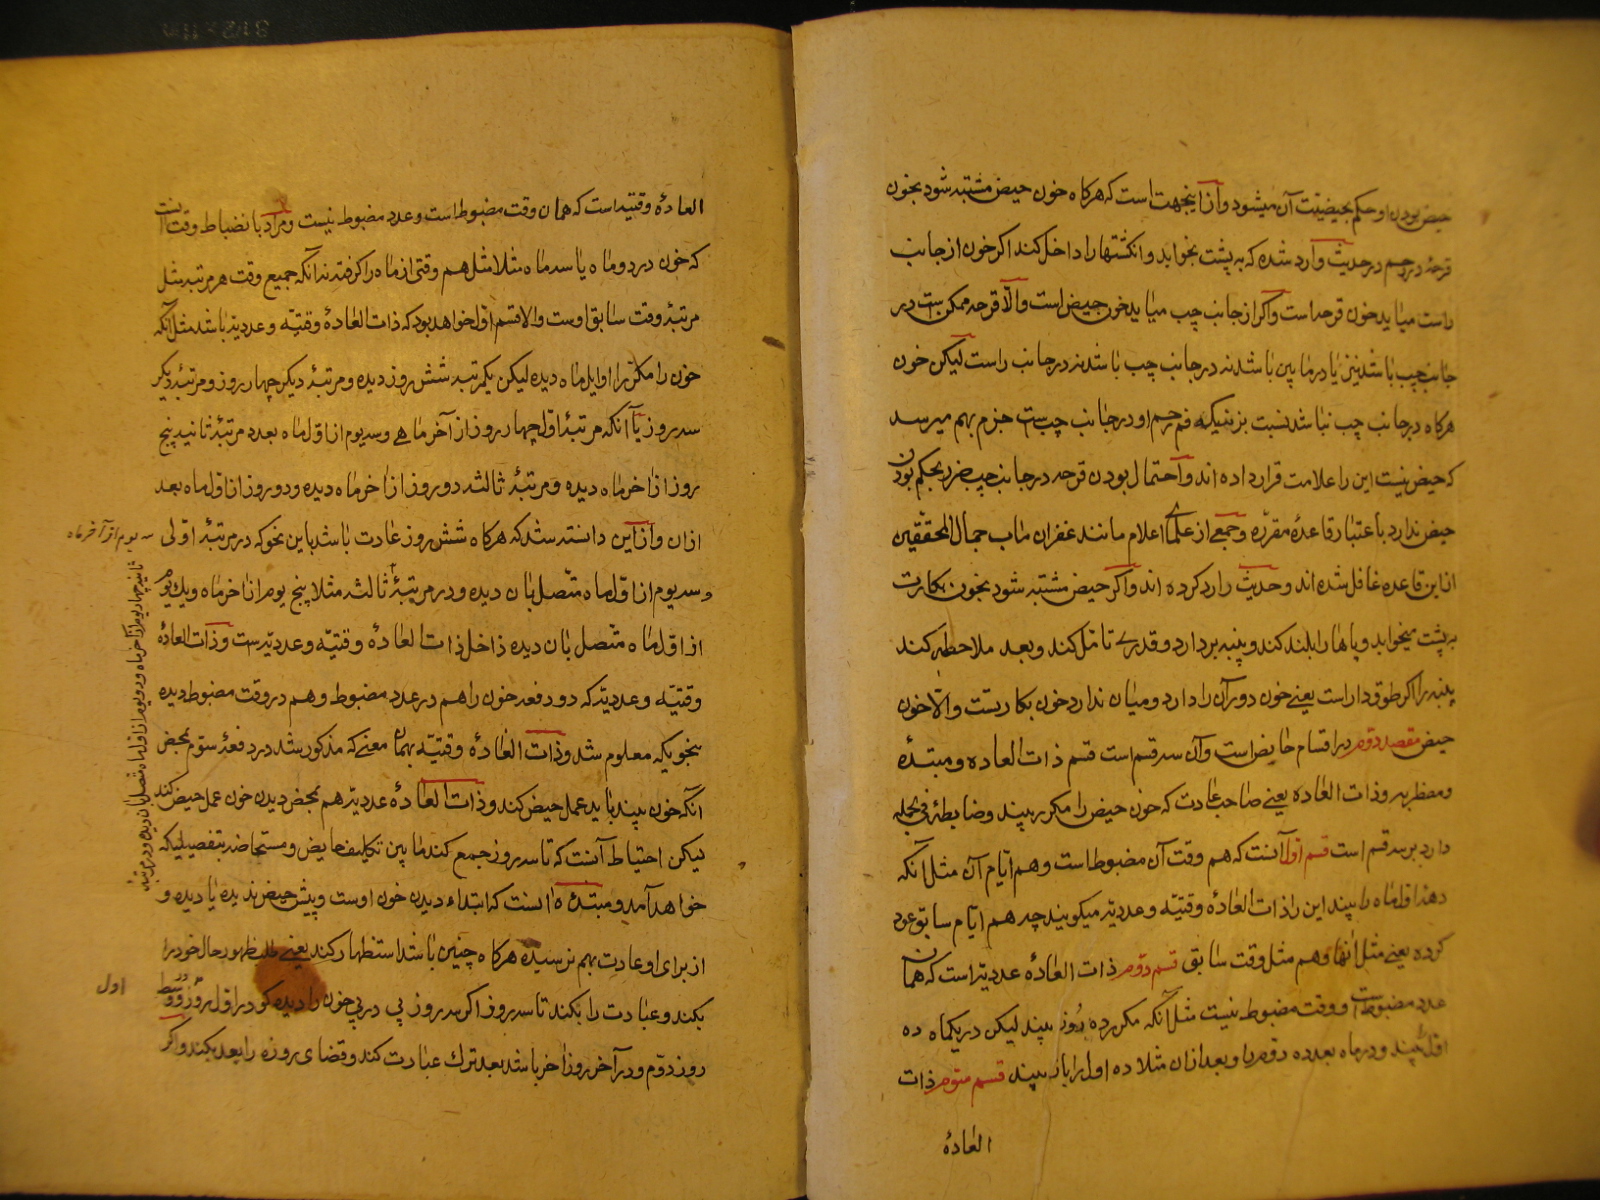 حیض بودن او حکم بحیضیت آن میشود و از اینجهت است که هرکاه خون حیض مشتبه شود بخون
قرحهٔ در رحم در حدیث وارد شده که به پشت بخوابد و انکشتها را داخل کند اکر خون از جانب
راست میاید خون قرحه است و اکر از جانب چب میاید خون حیض است و الّا قرحه ممکن ست در
جانب چب باشد نیز یا در مابین باشد نه در جانب چب باشد نه در جانب راست لیکن خون
هرکاه در جانب چب نباشد نسبت بزنیکه فم رحم او در جانب چب ست جزم بهم میرسد
که حیض نیست این را علامت قرار داده اند و احتمال بودن قرحه در جانب چب ضرر بحکم بودن
حیض ندارد باعتبار قاعدهٔ مقرّره و جمعی از علمای اعلام مانند غفران ماب جمال المحققین
از این قاعده غافل شده اند و حدیث را رد کرده اند و اکر حیض مشتبه شود بخون بکارت
به پشت میخوابد و پاها را بلند کند و پنبه بردارد و قدری تامّل کند و بعد ملاحظه کند
پنبه را اکر طوق دار است یعنی خون دور آن را دارد و میان ندارد خون بکارتست و الّا خون
حیض مقصد دوم در اقسام حایض است و آن سه قسم است قسم ذات العاده و مبتدئه
و مضطربه و ذات العاده یعنی صاحب عادت که خون حیض را مکرر ببیند و ضابطهٔ فی الجمله
دارد بر سه قسم است قسم اوّل آنست که هم وقت آن مضبوط است و هم ایّام آن مثل آنکه
دهه اوّل ماه را ببیند این را ذات العادهٔ وقتیّه و عددیّه میکویند چه هم ایّام سابق عود
کرده یعنی مثل انها و هم مثل وقت سابق قسم دوّم ذات العادهٔ عددیّه است که همان
عدد مضبوط است و وقت مضبوط نیست مثل آنکه مکرر ده روز ببیند لیکن در یکماه ده
اوّل ببیند و در ماه بعد ده دوّم را و بعد از آن مثلا ده اول را باز ببیند قسم سوّم ذات
العادهٔ
العادهٔ وقتیه است که همان وقت مضبوط است و عدد مضبوط نیست و مراد بانضباط وقت آنست
که خون در دو ماه یا سه ماه مثلا مثل هم وقتی از ماه را کرفته نه انکه جمیع وقت هر مرتبه مثل
مرتبهٔ وقت سابق اوست و الا قسم اوّل خواهد بود که ذات العادهٔ وقتیّه و عددیّه باشد مثل آنکه
خون را مکرّر اوایل ماه دیده لیکن یکمرتبه شش روز دیده و مرتبهٔ دیکر چهار روز و مرتبهٔ دیکر
سه روز یا آنکه مرتبهٔ اوّل چهار روز از آخر ماهی و سه یوم از اوّل ماه بعد و مرتبهٔ ثانیه پنج
روز از اخر ماه دیده و مرتبهٔ ثالثه دو روز از اخر ماه دیده و دو روز از اوّل ماه بعد
ازان و از این دانسته شد که هرکاه شش روز عادت باشد باین نحو که در مرتبهٔ اولی
سه یوم از آخر ماه
و سه یوم از اوّل ماه متّصل بان دیده و در مرتبهٔ ثالثه مثلا پنج یوم از اخر ماه و یک یوم
ثانیه چهار یوم از آخر ماه و دو یوم از اول ماه متصل بان دیده و در مرتبهٔ
از اوّل ماه متّصل بان دیده داخل ذات العادهٔ وقتیّه و عددیّه است و ذات العادهٔ
وقتیّه و عددیّه که دو دفعه خون را هم در عدد مضبوط و هم در وقت مضبوط دیده
بنحویکه معلوم شد و ذات العادهٔ وقتیّه بهمان معنی که مذکور شد در دفعهٔ سوّم بمحض
آنکه خون ببیند باید عمل حیض کند و ذات العادهٔ عددیّه هم بمحض دیدن خون عمل حیض کند
لیکن احتیاط آنست که تا سه روز جمع کند مابین تکالیف حایض و مستحاضه بتفصیلیکه
خواهد آمد و مبتدئه انست که ابتداء دیدن خون اوست و پیش حیض ندیده یا دیده و
از برای او عادت بهم نرسیده هرکاه چنین باشد استظهار کند یعنی طلب ظهور حال خود را
بکند و عبادت را بکند تا سه روز اکر سه روز پی در پی خون را دیده کو در اول روز و وسط
اول
روز دوّم و در آخر روز اخر باشد بعد ترک عبادت کند و قضای روزه را بعد بکند و اکر